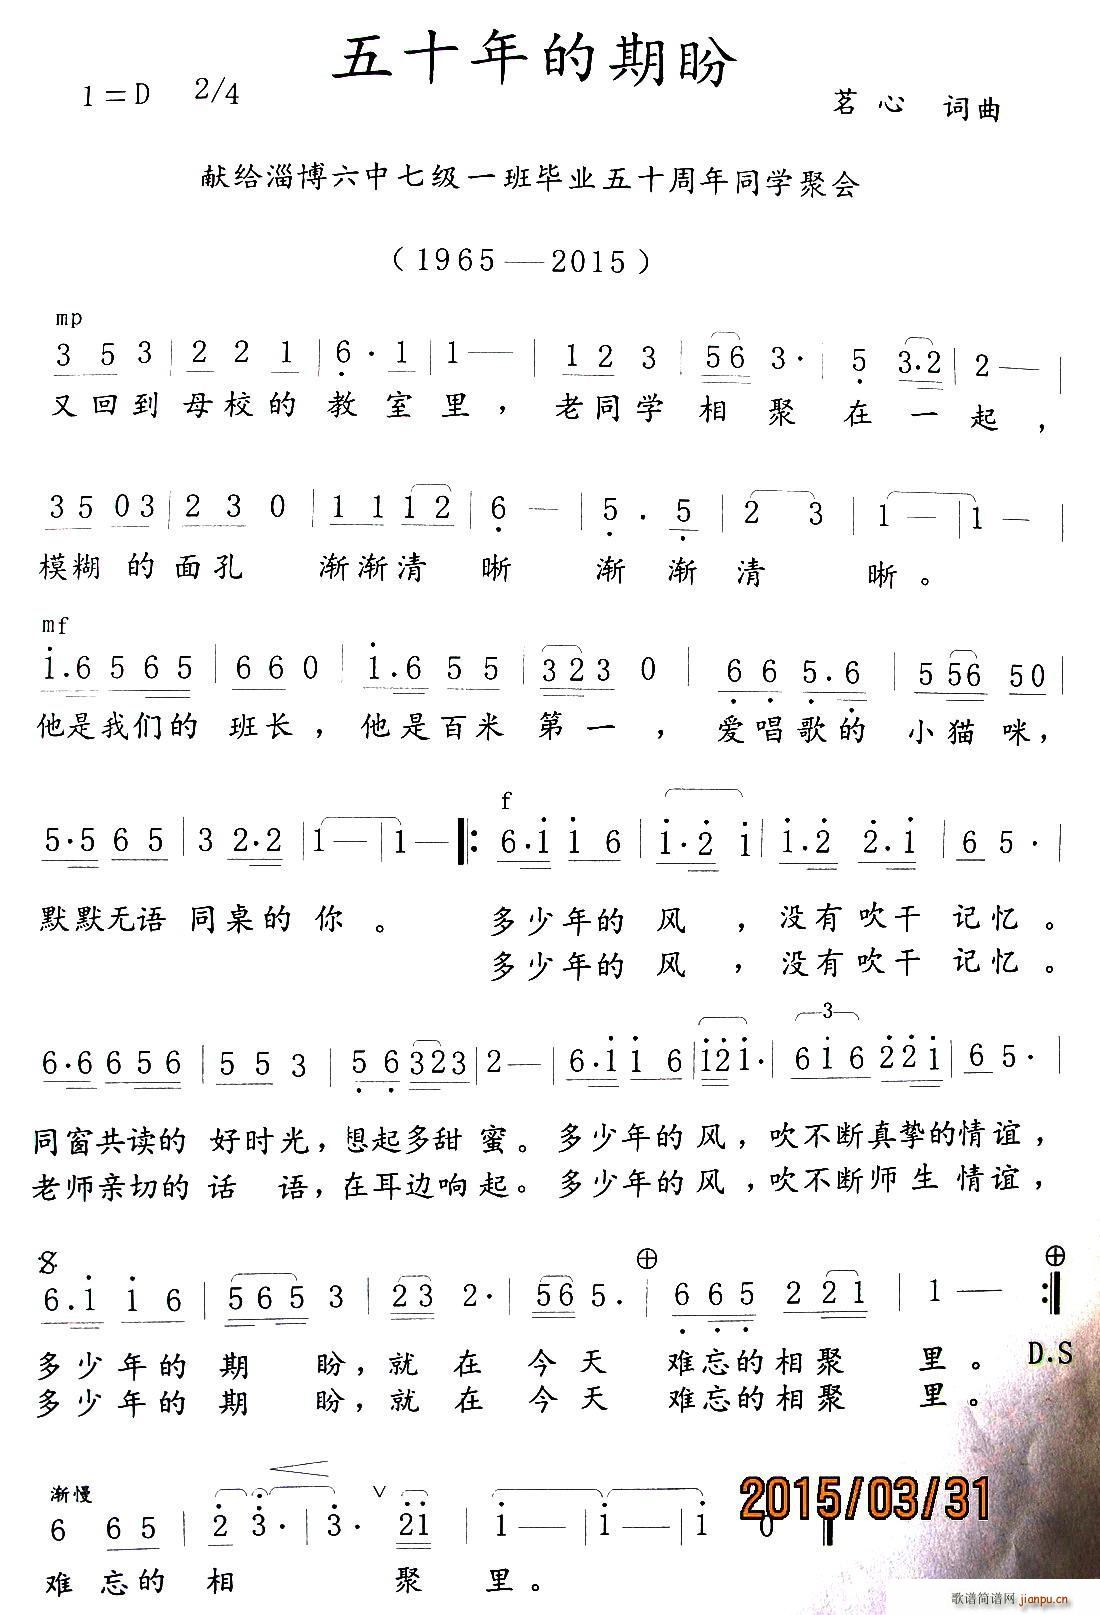 五十年的期盼
1=D 2/4
茗心 词曲
献给淄博六中七级一班毕业五十周年同学聚会
(1965——2015)
mp
3 5 3 | 2 2 1 | 6 · 1 | 1 — | 1 2 3 | 56 3· | 5 3·2 | 2 — |
又回到 母校的 教室里, 老同学 相聚在一起,
35 03 | 2 3 0 | 1 1 12 | 6 — | 5 · 5 | 2 3 | 1 — | 1 — |
模糊的面孔 渐渐清晰 渐渐清晰。
mf
1·6 565 | 6 6 0 | 1·6 5 5 | 323 0 | 6 6 5·6 | 556 50 |
他是我们的 班长, 他是百米 第一, 爱唱歌的 小猫咪,
f
5·5 65 | 3 2·2 | 1 — | 1 — |: 6·1 1 6 | 1·2 1 | 1·2 2·1 | 6 5· |
默默无语 同桌的你。 多少年的 风, 没有吹干 记忆。
多少年的 风, 没有吹干 记忆。
3
6·6 656 | 5 5 3 | 56 323 | 2 — | 6·1 1 6 | 121· | 616 221 | 6 5· |
同窗共读的 好时光, 想起多甜 蜜。 多少年的风, 吹不断真挚的情谊,
老师亲切的 话语, 在耳边响起。 多少年的风, 吹不断师生情谊,
6·1 1 6 | 565 3 | 23 2· | 56 5· | 6 65 2 21 | 1 — :|
多少年的 期盼, 就在今天 难忘的相聚 里。 D.S
多少年的 期盼, 就在今天 难忘的相聚 里。
渐慢
6 65 | 2 3· | 3· 21 | 1 — | 1 — | 1 0 ‖
2015/03/31
难忘的相 聚里。
歌谱简谱网 jianpu.cn